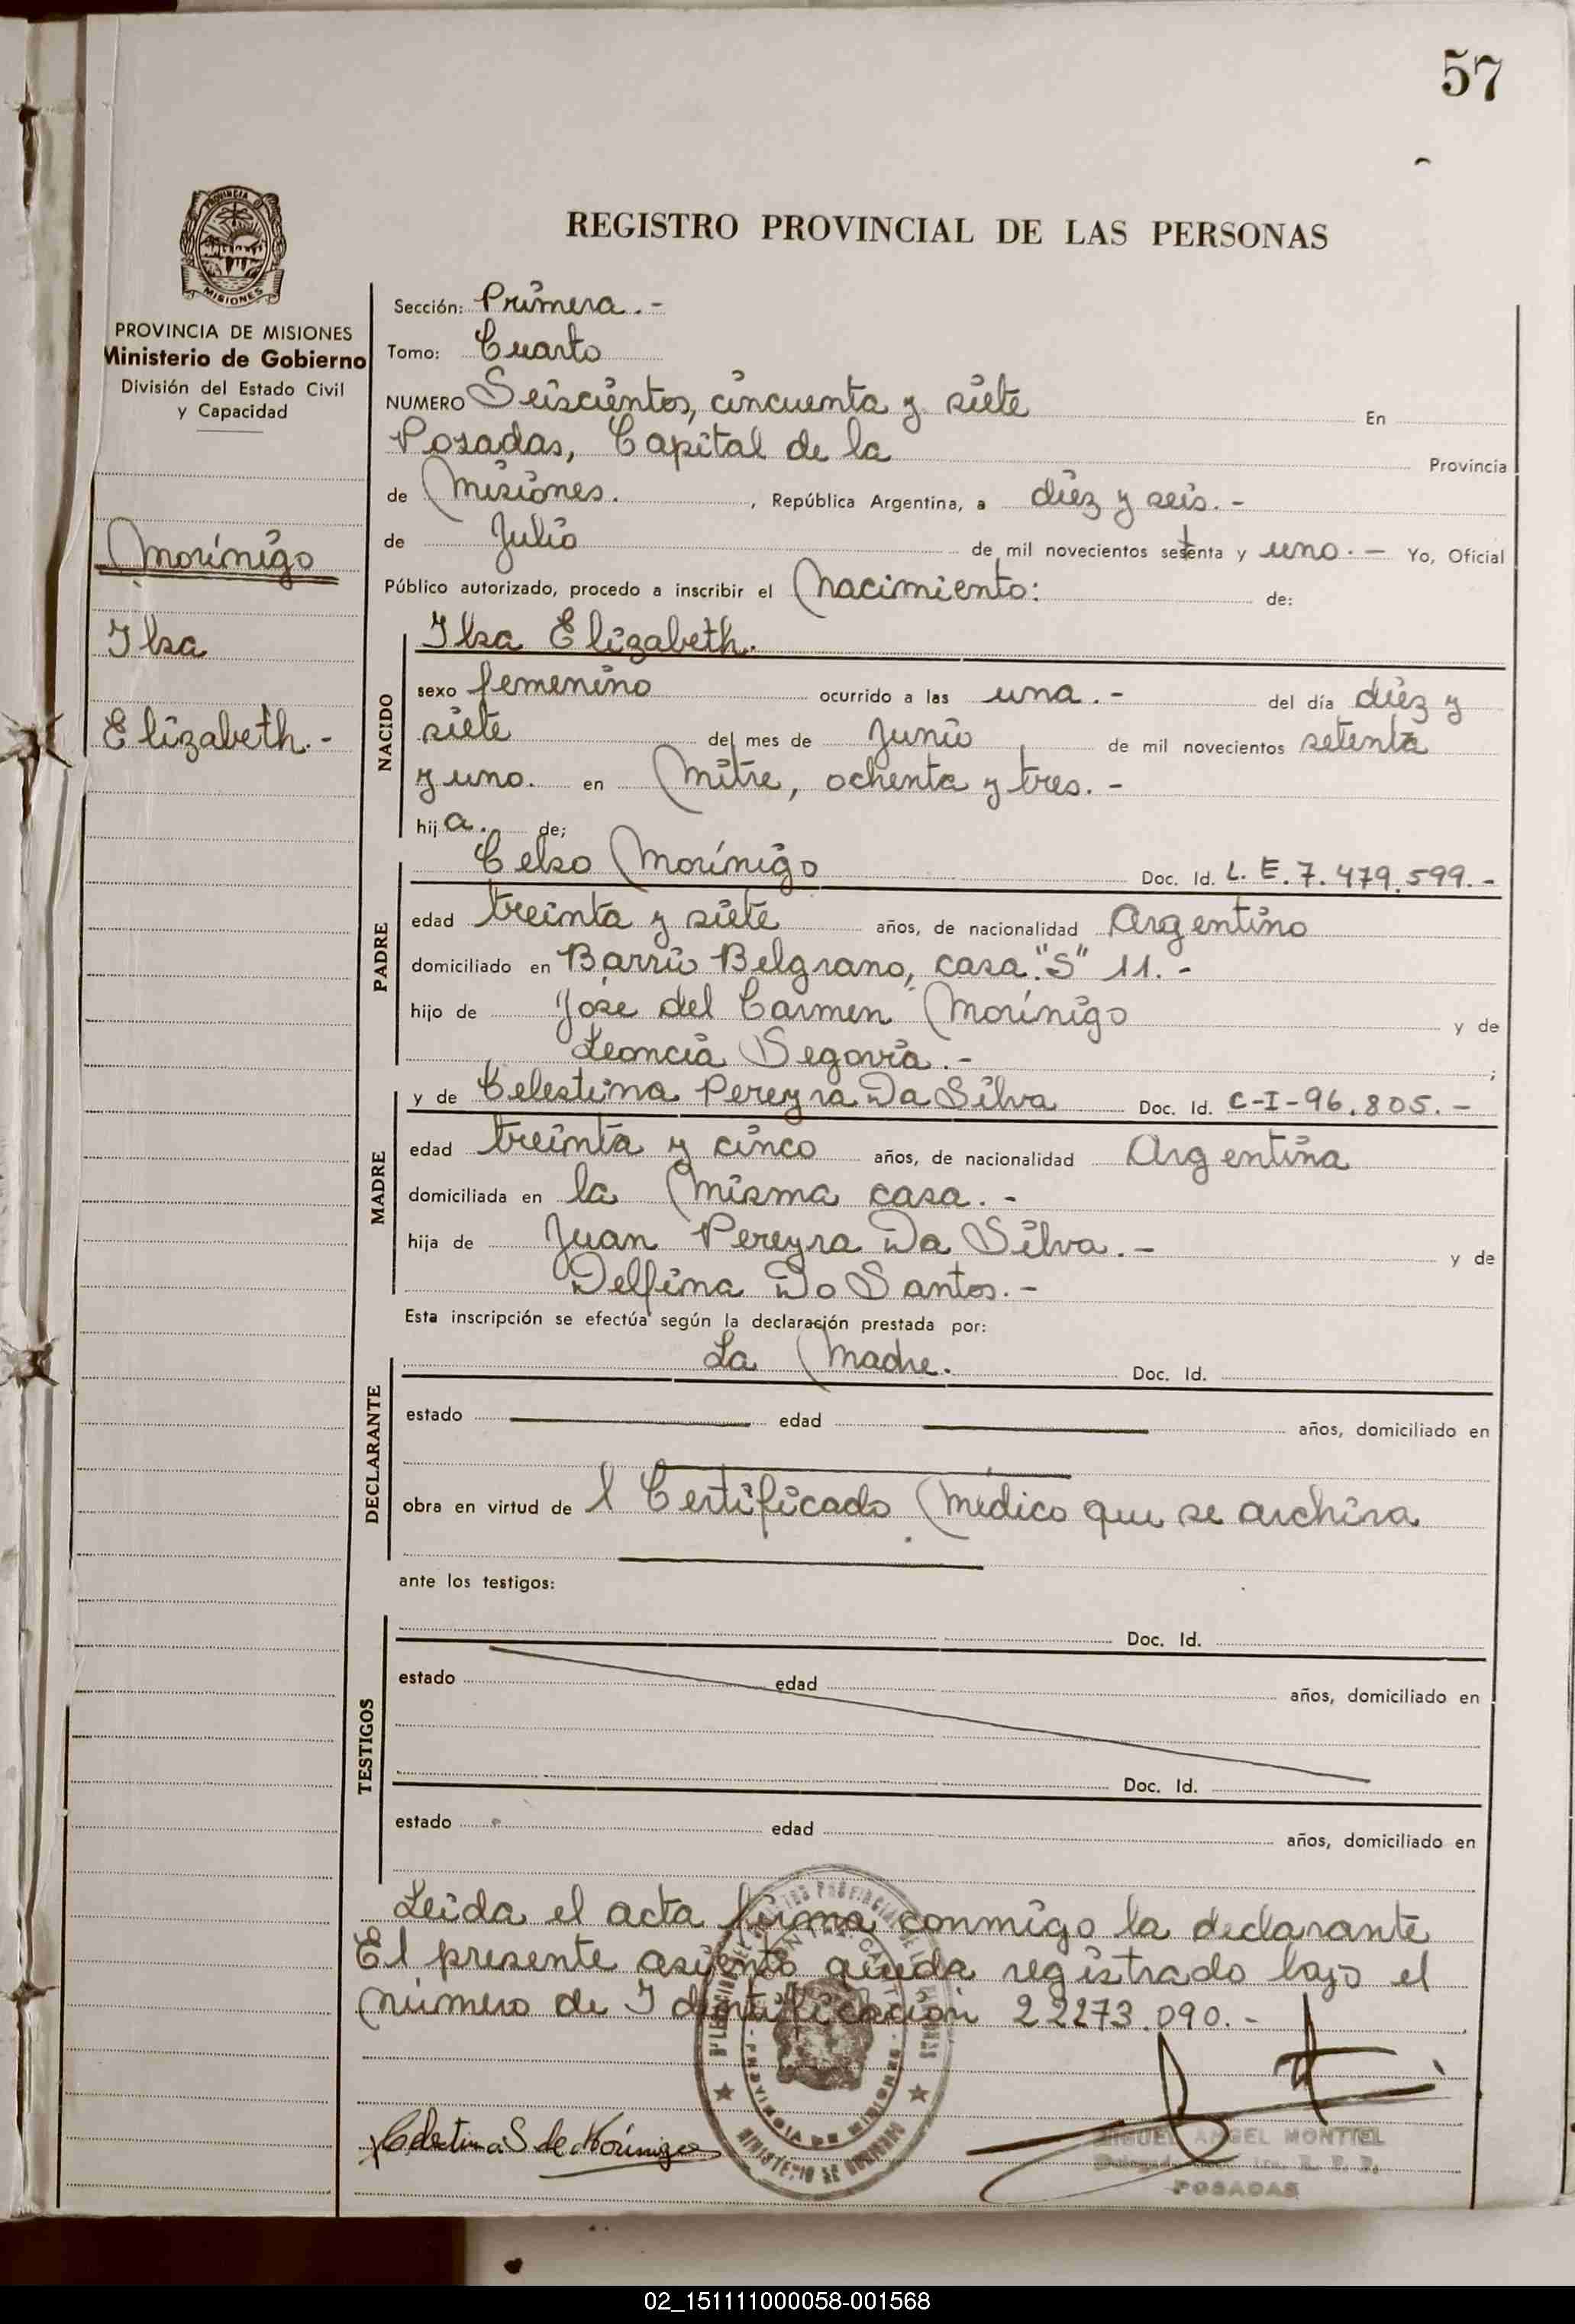 57
REGISTRO PROVINCIAL DE LAS PERSONAS
PROVINCIA
MISIONES
PROVINCIA DE MISIONES
Ministerio de Gobierno
División del Estado Civil
y Capacidad
Morínigo
Ilsa
Elizabeth.-
Sección: Primera.-
Tomo: Cuarto
NUMERO Seiscientos, cincuenta y siete En
Posadas, Capital de la Provincia
de Misiones. , República Argentina, a diez y seis.-
de Julio de mil novecientos setenta y uno.- Yo, Oficial
Público autorizado, procedo a inscribir el Nacimiento: de:
NACIDO
Ilsa Elizabeth.
sexo femenino ocurrido a las una.- del día diez y
siete del mes de Junio de mil novecientos setenta
y uno. en Mitre, ochenta y tres.-
hij a. de;
PADRE
Celso Morínigo Doc. Id. L. E. 7.479.599.-
edad treinta y siete años, de nacionalidad Argentino
domiciliado en Barrio Belgrano, casa "S" 11.-
hijo de José del Carmen Morínigo y de
Leoncia Segovia.- ;
MADRE
y de Celestina Pereyra Da Silva Doc. Id. C-I-96.805.-
edad treinta y cinco años, de nacionalidad Argentina
domiciliada en la misma casa.-
hija de Juan Pereyra Da Silva.- y de
Delfina Do Santos.-
Esta inscripción se efectúa según la declaración prestada por:
DECLARANTE
La Madre. Doc. Id.
estado edad años, domiciliado en
obra en virtud de l Certificado Médico que se archiva
ante los testigos:
TESTIGOS
Doc. Id.
estado edad años, domiciliado en
Doc. Id.
estado edad años, domiciliado en
Leida el acta firma conmigo la declarante
El presente asiento queda registrado bajo el
número de Identificación 22273.090.-
PROVINCIA DE MISIONES
MINISTERIO DE GOBIERNO
Celestina S de Morinigo
MIGUEL ANGEL MONTIEL
POSADAS
02_151111000058-001568